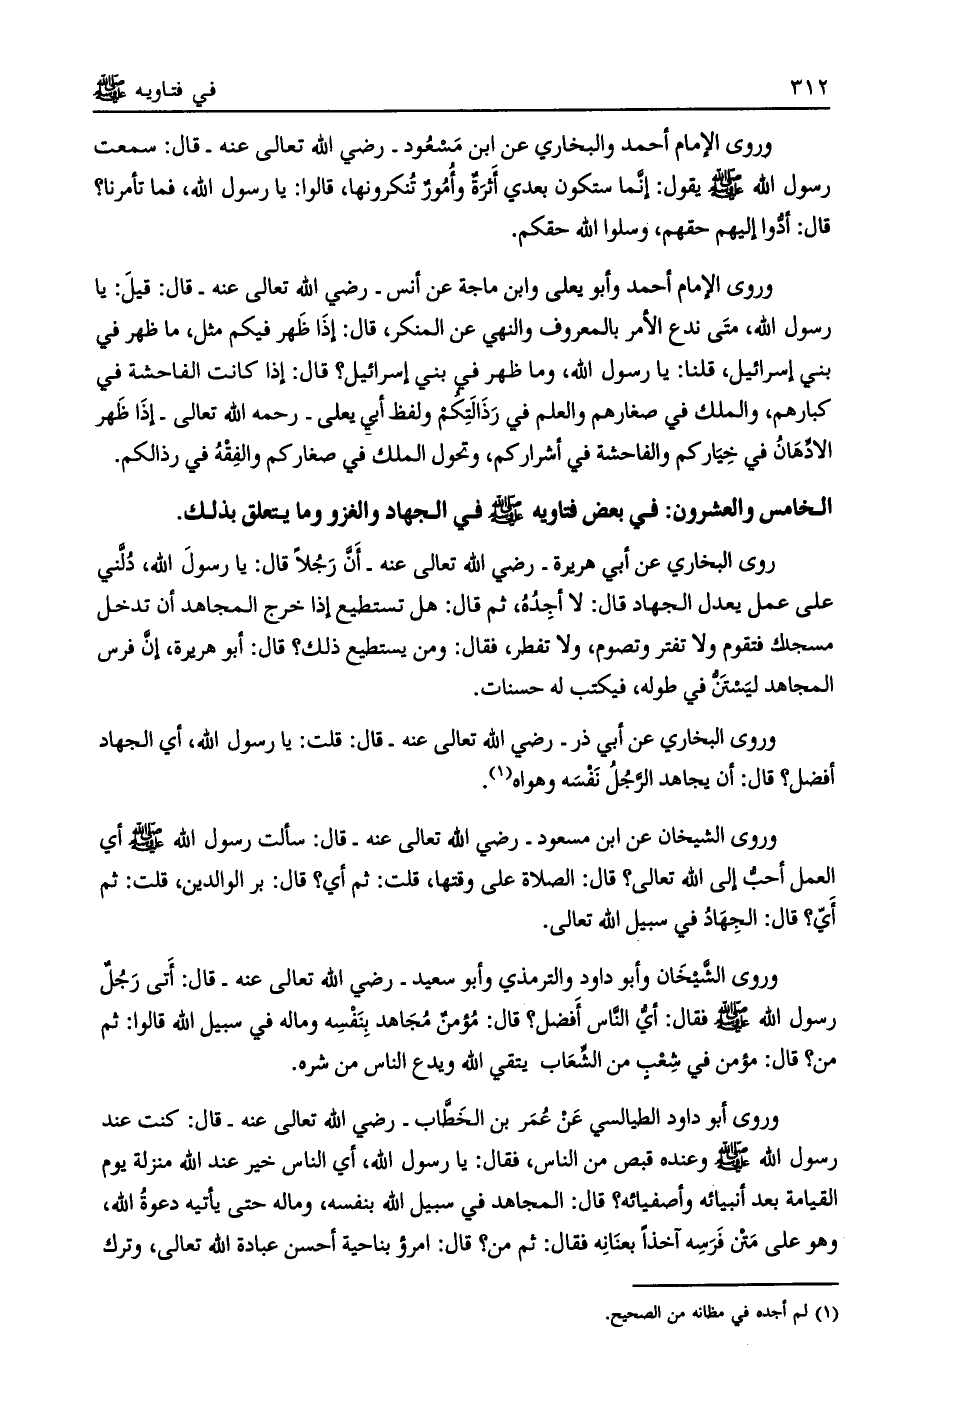 ٣١٢
في فتاويه ﷺ
وروى الإمام أحمد والبخاري عن ابن مَسْعُود ـ رضي الله تعالى عنه ـ قال: سمعت
رسول الله ﷺ يقول: إنَّما ستكون بعدي أَثرَةٌ وأُمُورٌ تُنكرونها، قالوا: يا رسول الله، فما تأمرنا؟
قال: أدُّوا إليهم حقهم، وسلوا الله حقكم.
وروى الإمام أحمد وأبو يعلى وابن ماجة عن أنس ـ رضي الله تعالى عنه ـ قال: قيلَ: يا
رسول الله، متَى ندع الأمر بالمعروف والنهي عن المنكر، قال: إذَا ظَهر فيكم مثل، ما ظهر في
بني إسرائيل، قلنا: يا رسول الله، وما ظهر في بني إسرائيل؟ قال: إذا كانت الفاحشة في
كبارهم، والملك في صغارهم والعلم في رَذَالَتِكُمْ ولفظ أبي يعلى ـ رحمه الله تعالى ـ إذَا ظَهر
الادِّهَانُ في خِيَاركم والفاحشة في أشراركم، وتحول الملك في صغاركم والفِقْهُ في رذالكم.
الخامس والعشرون: في بعض فتاويه ﷺ في الجهاد والغزو وما يتعلق بذلك.
روى البخاري عن أبي هريرة ـ رضي الله تعالى عنه ـ أَنَّ رَجُلاً قال: يا رسولَ الله، دُلَّني
على عمل يعدل الجهاد قال: لا أجِدُهُ، ثم قال: هل تستطيع إذا خرج المجاهد أن تدخل
مسجدك فتقوم ولا تفتر وتصوم، ولا تفطر، فقال: ومن يستطيع ذلك؟ قال: أبو هريرة، إنَّ فرس
المجاهد ليَسْتَنُّ في طوله، فيكتب له حسنات.
وروى البخاري عن أبي ذر ـ رضي الله تعالى عنه ـ قال: قلت: يا رسول الله، أي الجهاد
أفضل؟ قال: أن يجاهد الرَّجُلُ نَفْسَه وهواه(١).
وروى الشيخان عن ابن مسعود ـ رضي الله تعالى عنه ـ قال: سألت رسول الله ﷺ أي
العمل أحبُّ إلى الله تعالى؟ قال: الصلاة على وقتها، قلت: ثم أي؟ قال: بر الوالدين، قلت: ثم
أَيّ؟ قال: الجِهَادُ في سبيل الله تعالى.
وروى الشَّيْخَان وأبو داود والترمذي وأبو سعيد ـ رضي الله تعالى عنه ـ قال: أَتى رَجُلٌ
رسول الله ﷺ فقال: أيُّ النَّاس أَفضل؟ قال: مُؤمنٌ مُجَاهد بِنَفْسِه وماله في سبيل الله قالوا: ثم
من؟ قال: مؤمن في شِعْبٍ من الشِّعَاب يتقي الله ويدع الناس من شره.
وروى أبو داود الطيالسي عَنْ عُمَر بن الخَطَّاب ـ رضي الله تعالى عنه ـ قال: كنت عند
رسول الله ﷺ وعنده قبص من الناس، فقال: يا رسول الله، أي الناس خير عند الله منزلة يوم
القيامة بعد أنبيائه وأصفيائه؟ قال: المجاهد في سبيل الله بنفسه، وماله حتى يأتيه دعوةُ الله،
وهو على مَتْن فَرَسِه آخذاً بعنَانِه فقال: ثم من؟ قال: امرؤ بناحية أحسن عبادة الله تعالى، وترك
(١) لم أجده في مظانه من الصحيح.